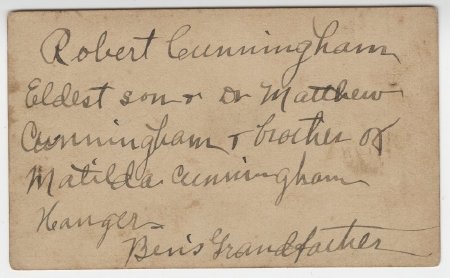 Robert Cunningham
Eldest son & Dr Matthew
Cunningham & brother of
Matilda Cunningham
Hanger
Ben's Grandfather